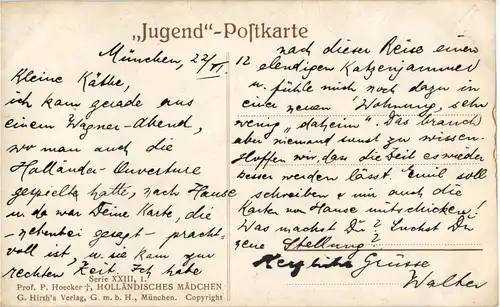 „Jugend"-Postkarte
München, 22/VI.
Kleine Käthe,
ich kam gerade aus
einem Wagner-Abend,
wo man auch die
Holländer-Ouverture
gespielt hatte, nach Hause
u. da war Deine Karte, die
- nebenbei gesagt - pracht-
voll ist, u. sie kam zur
rechten Zeit. Ich habe
nach dieser Reise einen
elendigen Katzenjammer
u. fühle mich noch dazu in
einer neuen Wohnung, sehr
wenig „daheim". Das brauch
aber niemand sunst zu wissen.
Hoffen wir, dass die Zeit es wieder
besser werden lässt. Emil soll
schreiben u mir auch die
Karten von Hause mitschicken!
Was machst Du? Suchst Du
eine Stellung?
Herzliche Grüsse
Walter
Serie XXIII, 1.
Prof. P. Hoecker †, HOLLÄNDISCHES MÄDCHEN
G. Hirth's Verlag, G. m. b. H., München. Copyright